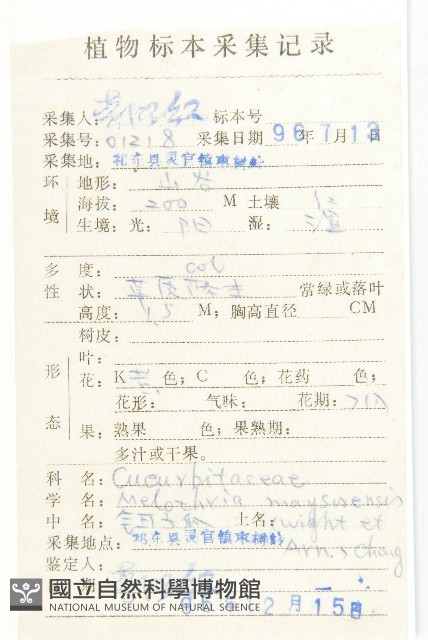 植物标本采集记录
采集人: 标本号
采集号: 01218 采集日期 96年7月13日
采集地: 祁东县灵官镇
环境 地形: 山谷
海拔: 200 M 土壤 红
生境: 光: 阳 湿: 湿
多度: col
性状: 常绿或落叶
高度: 1.5 M; 胸高直径 CM
形态 树皮:
叶:
花: K 色; C 色; 花药 色;
花形: 气味: 花期:
果: 熟果 色; 果熟期:
多汁或干果。
科名: Cucurbitaceae
学名: Melothria maysorensis
中名: 土名: wight et
采集地点: 祁东县灵官镇 Arn. s chang
鉴定人:
期
國立自然科學博物館
NATIONAL MUSEUM OF NATURAL SCIENCE
2月15日